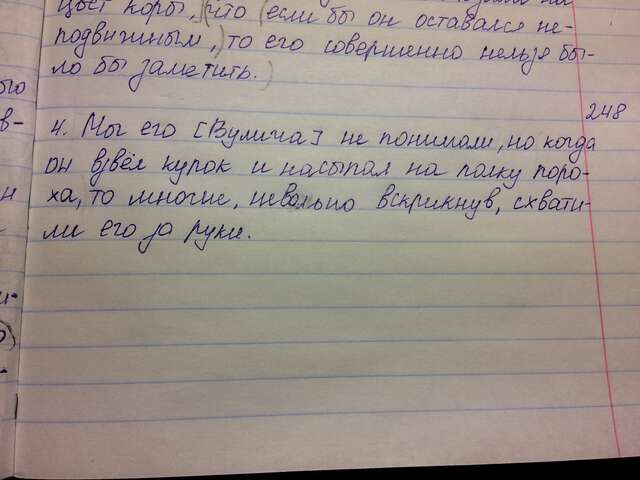 цвет коры, что (если бы он оставался не-
подвижным,) то его совершенно нельзя бы-
ло бы заметить.)
248
4. Мы его [Вулича] не понимали, но когда
он взвёл курок и насыпал на полку поро-
ха, то многие, невольно вскрикнув, схвати-
ли его за руки.